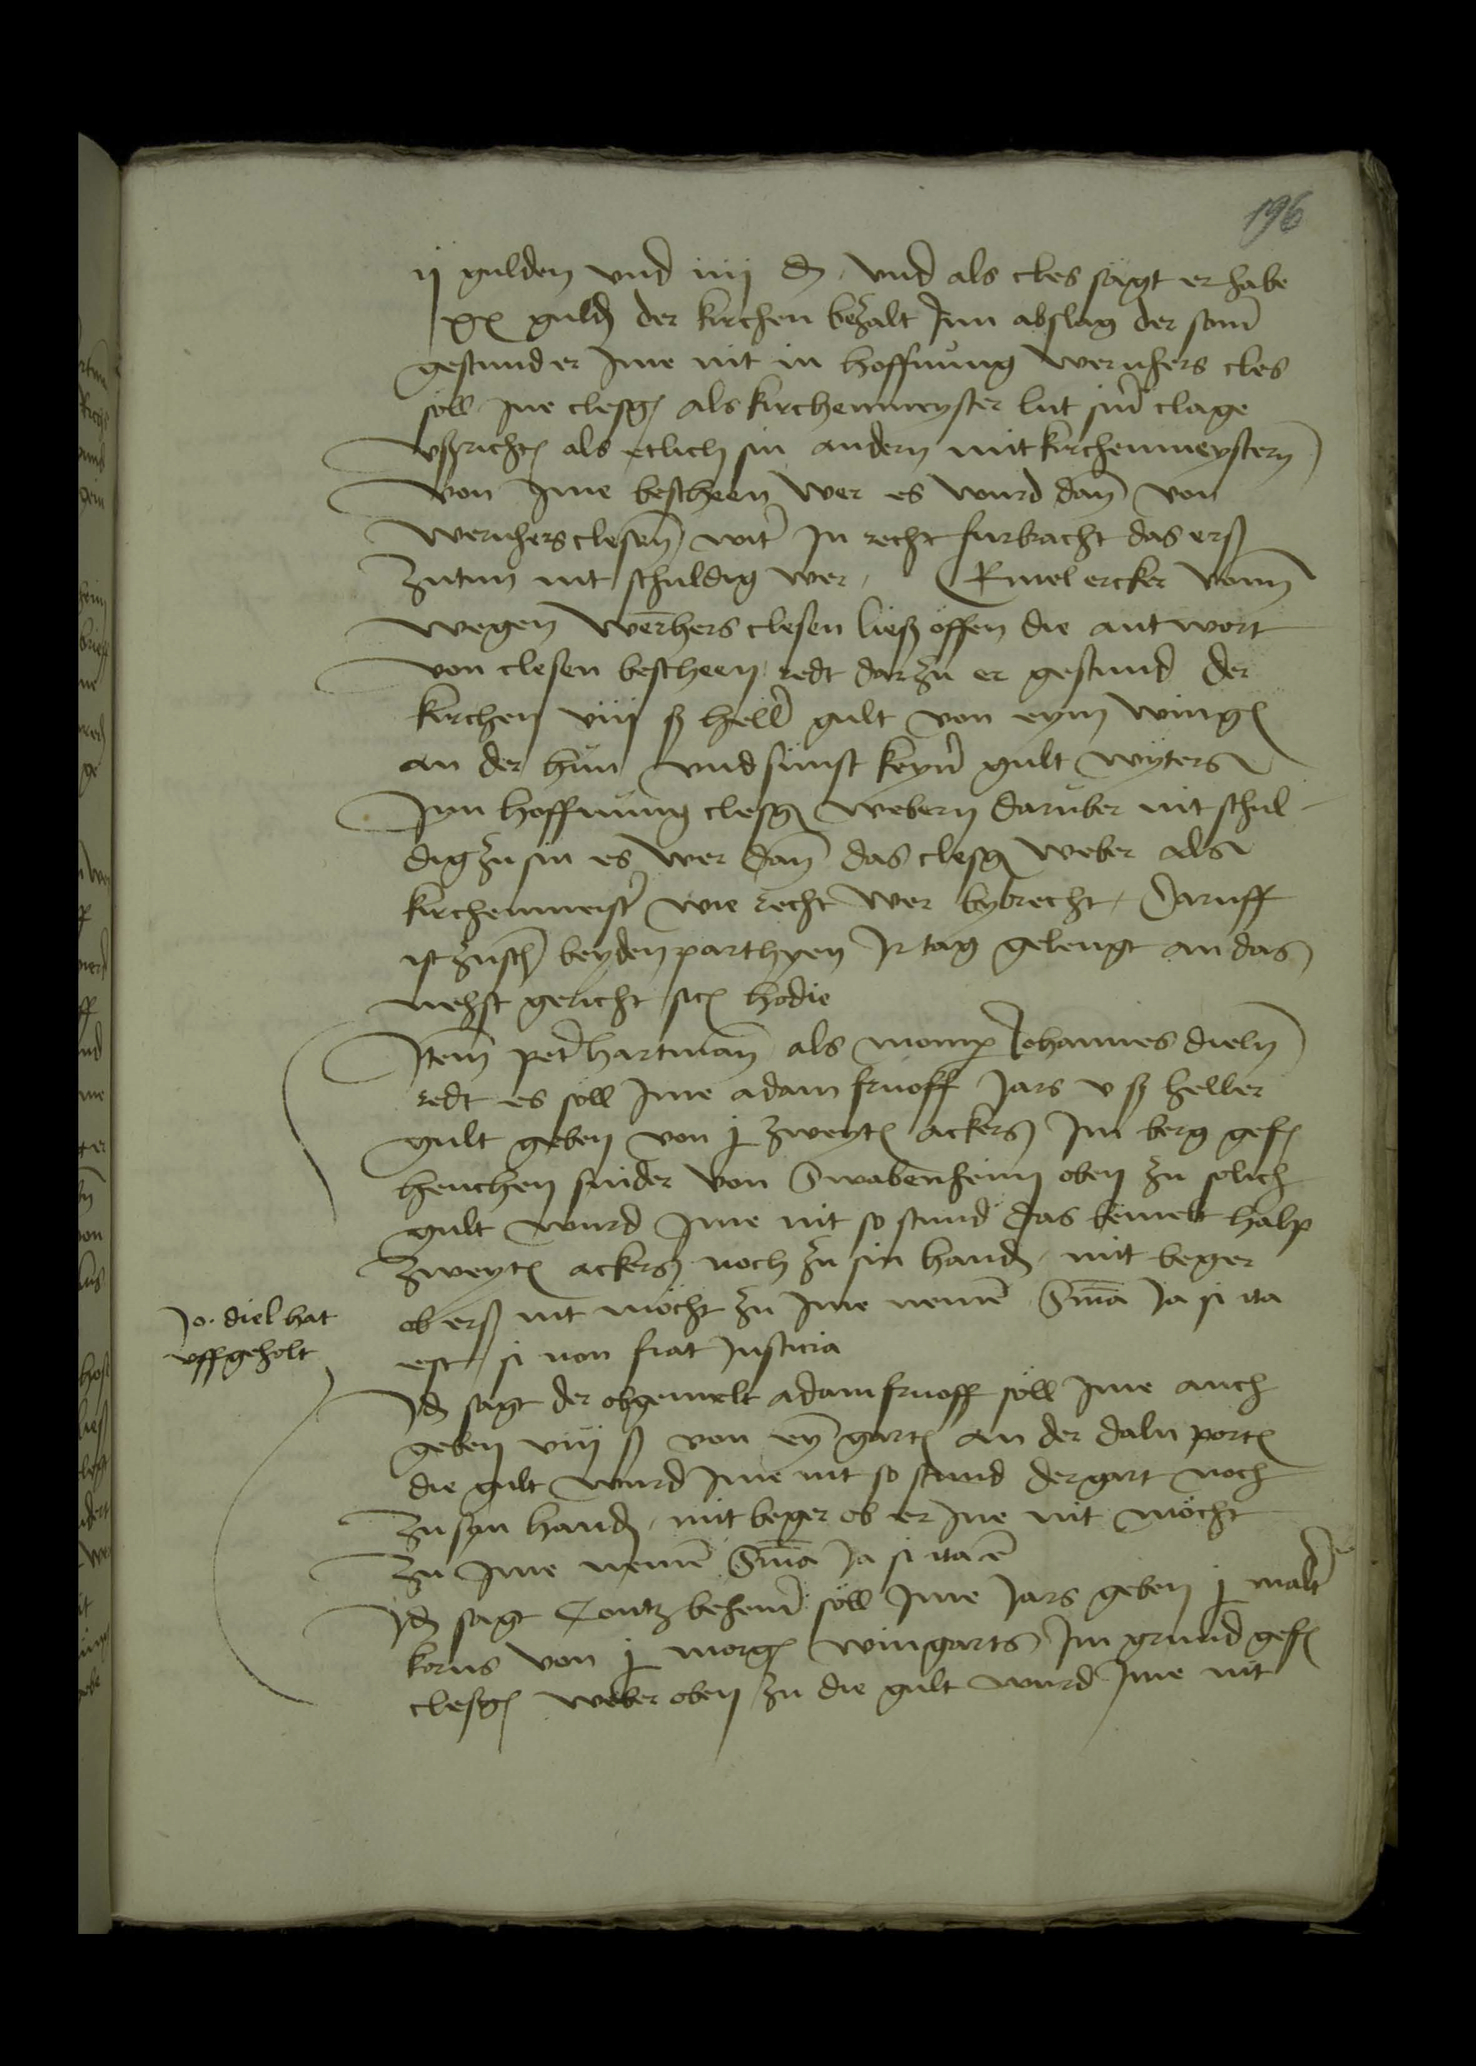 196
ij gulden vnd iiij d. vnd als cles sagt er habe
xx guld der kirchen bezalt Inn abslag der som
gestund er Ime nit in hoffnung wernhers cles
söll Ine clesgn als kirchenmeyster lut sinr clage
vßrichten als etlich sin andern mitkirchenmeystern
von Ime bescheen wer es wurd dan von
wernhers clesen wit In recht furbracht das erß
zutun nit schuldig wer. Emel ercker vonn
wegen wernhers clesen ließ offen die antwort
von clesen bescheen redt darzu er gestund der
kirchen viij ß heller gult von eym wingt
an der hun vnd sunst keyn gult wyters
Inn hoffnung clesgn webern daruber nit schul-
dig zu sin es wer dan das clesgn weber als
kirchenmeister wie recht wer bybrecht. Daruff
ist zuschen beyden parthyen Ir tag gelengt an das
nehst gericht sic hodie
Item peter hartman als momp Johannes dieln
redt es söll Ime adam fruoff Jars v ß heller
gult geben von j zweytel ackers Im berg gefor
henchen snider von Swabenheim oben zu solich
gult wurd Ime nit so stund das bemelt halp
zweytel ackers noch zu sin handen. mit beger
ob erß nit möcht zu Ime nemen Sma Ja si ita
est si non fiat Justicia
Jo. diel hat
vffgeholt
Id sagt der obgemelt adam fruoff söll Ime auch
geben viij ß von eym garten an der daln porten
die gult wurd Ime nit so stund der gart noch
zu syn handen. mit beger ob er Ine nit möcht
zu Ime nemen Sma Ja si ita e
Id sagt Contz behemer söll Ime Jars geben j malter
korns von j morgen wingarts Im grund gefor
clesgn weber oben zu die gult wurd Ime nit